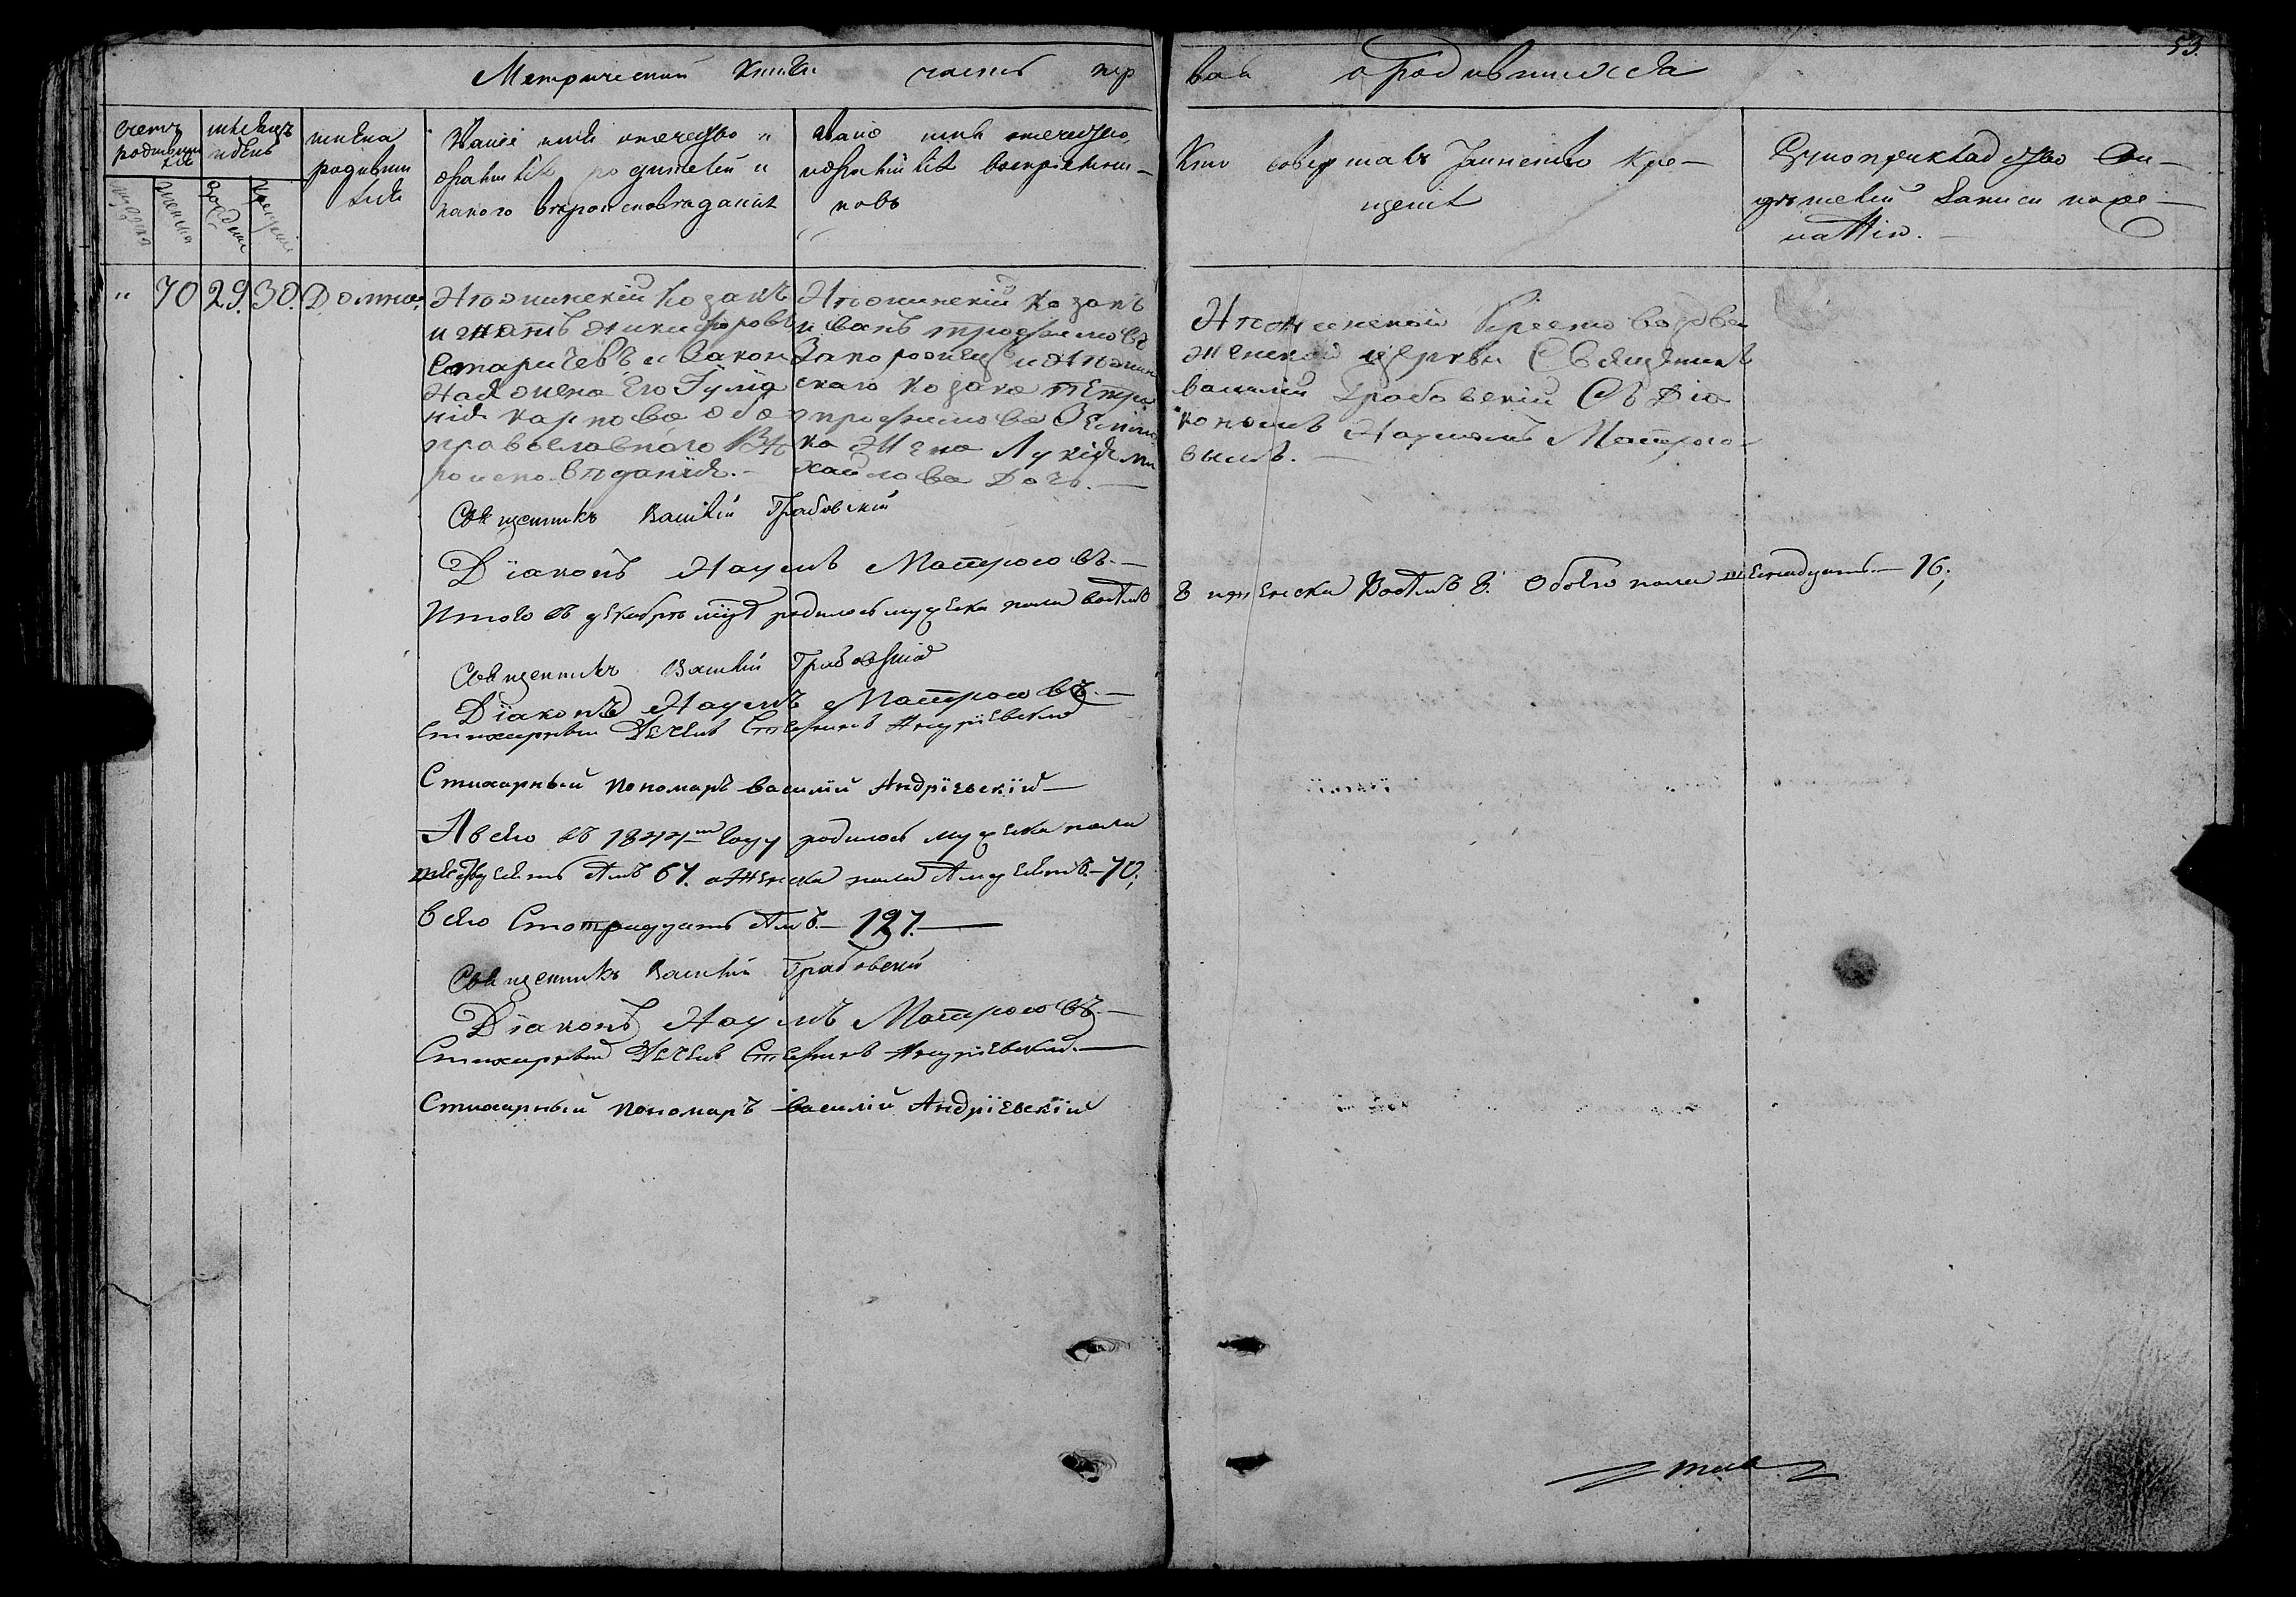 Метрической книги часть пер
вая о родившихся
53.
счетъ родившихся
мѣсяцъ и день
имена родившихся
Званіе имя отечество и фамилія родителей и какого вѣроисповѣданія
Званіе имя отечество и фамилія воспріемниковъ
Кто совершалъ таинство крещенія
Рукоприкладство свидѣтелей записи по желанію.
мужеска
женска
рожденія
крещенія
„ 70 29. 30. Домна.
Нѣжинскій козакъ
Игнатъ Никифоровъ
Старичевъ и закон
ная жена его Гулиа
нія Карпова оба
православнаго вѣ
роисповѣданія.—
Нѣжинскій козакъ
Иванъ Трофимовъ
Запорожецъ и Нѣжин
скаго козака Петра
Трофимова
жена Лукія Ми
хайлова дочь.—
Нѣжинской Крестовоздви
женской церкви Священникъ
Василій Грабовскій съ Діа
кономъ Наумомъ Матросо
вымъ.—
Священникъ Василій Грабовскій
Діаконъ Наумъ Матросовъ.—
Итого въ декабрѣ м͠цѣ родилось мужеска пола восемь
8 женска восемь 8. Обоего пола шестнадцать.— 16.
Священникъ Василій Грабовскій
Діаконъ Наумъ Матросовъ.—
Стихарный Дячекъ Стефанъ Андріевскій
Стихарный пономаръ Василій Андріевскій—
А всего въ 1844м году родилось мужеска пола
67. а женска пола 70.
всего 127.—
Священникъ Василій Грабовскій
Діаконъ Наумъ Матросовъ.—
Стихарный Дячекъ Стефанъ Андріевскій.—
Стихарный пономаръ Василій Андріевскій